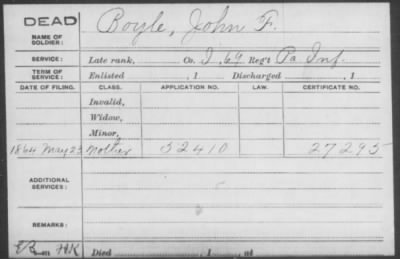 DEAD
Boyle, John F.
NAME OF SOLDIER:
SERVICE: Late rank, Co. I, 69 Reg't Pa Inf.
TERM OF SERVICE: Enlisted , 1 Discharged , 1
DATE OF FILING. CLASS. APPLICATION NO. LAW. CERTIFICATE NO.
Invalid,
Widow,
Minor,
1864 May 23 Mother 52410 27295
ADDITIONAL SERVICES:
REMARKS:
Died , 1 , at